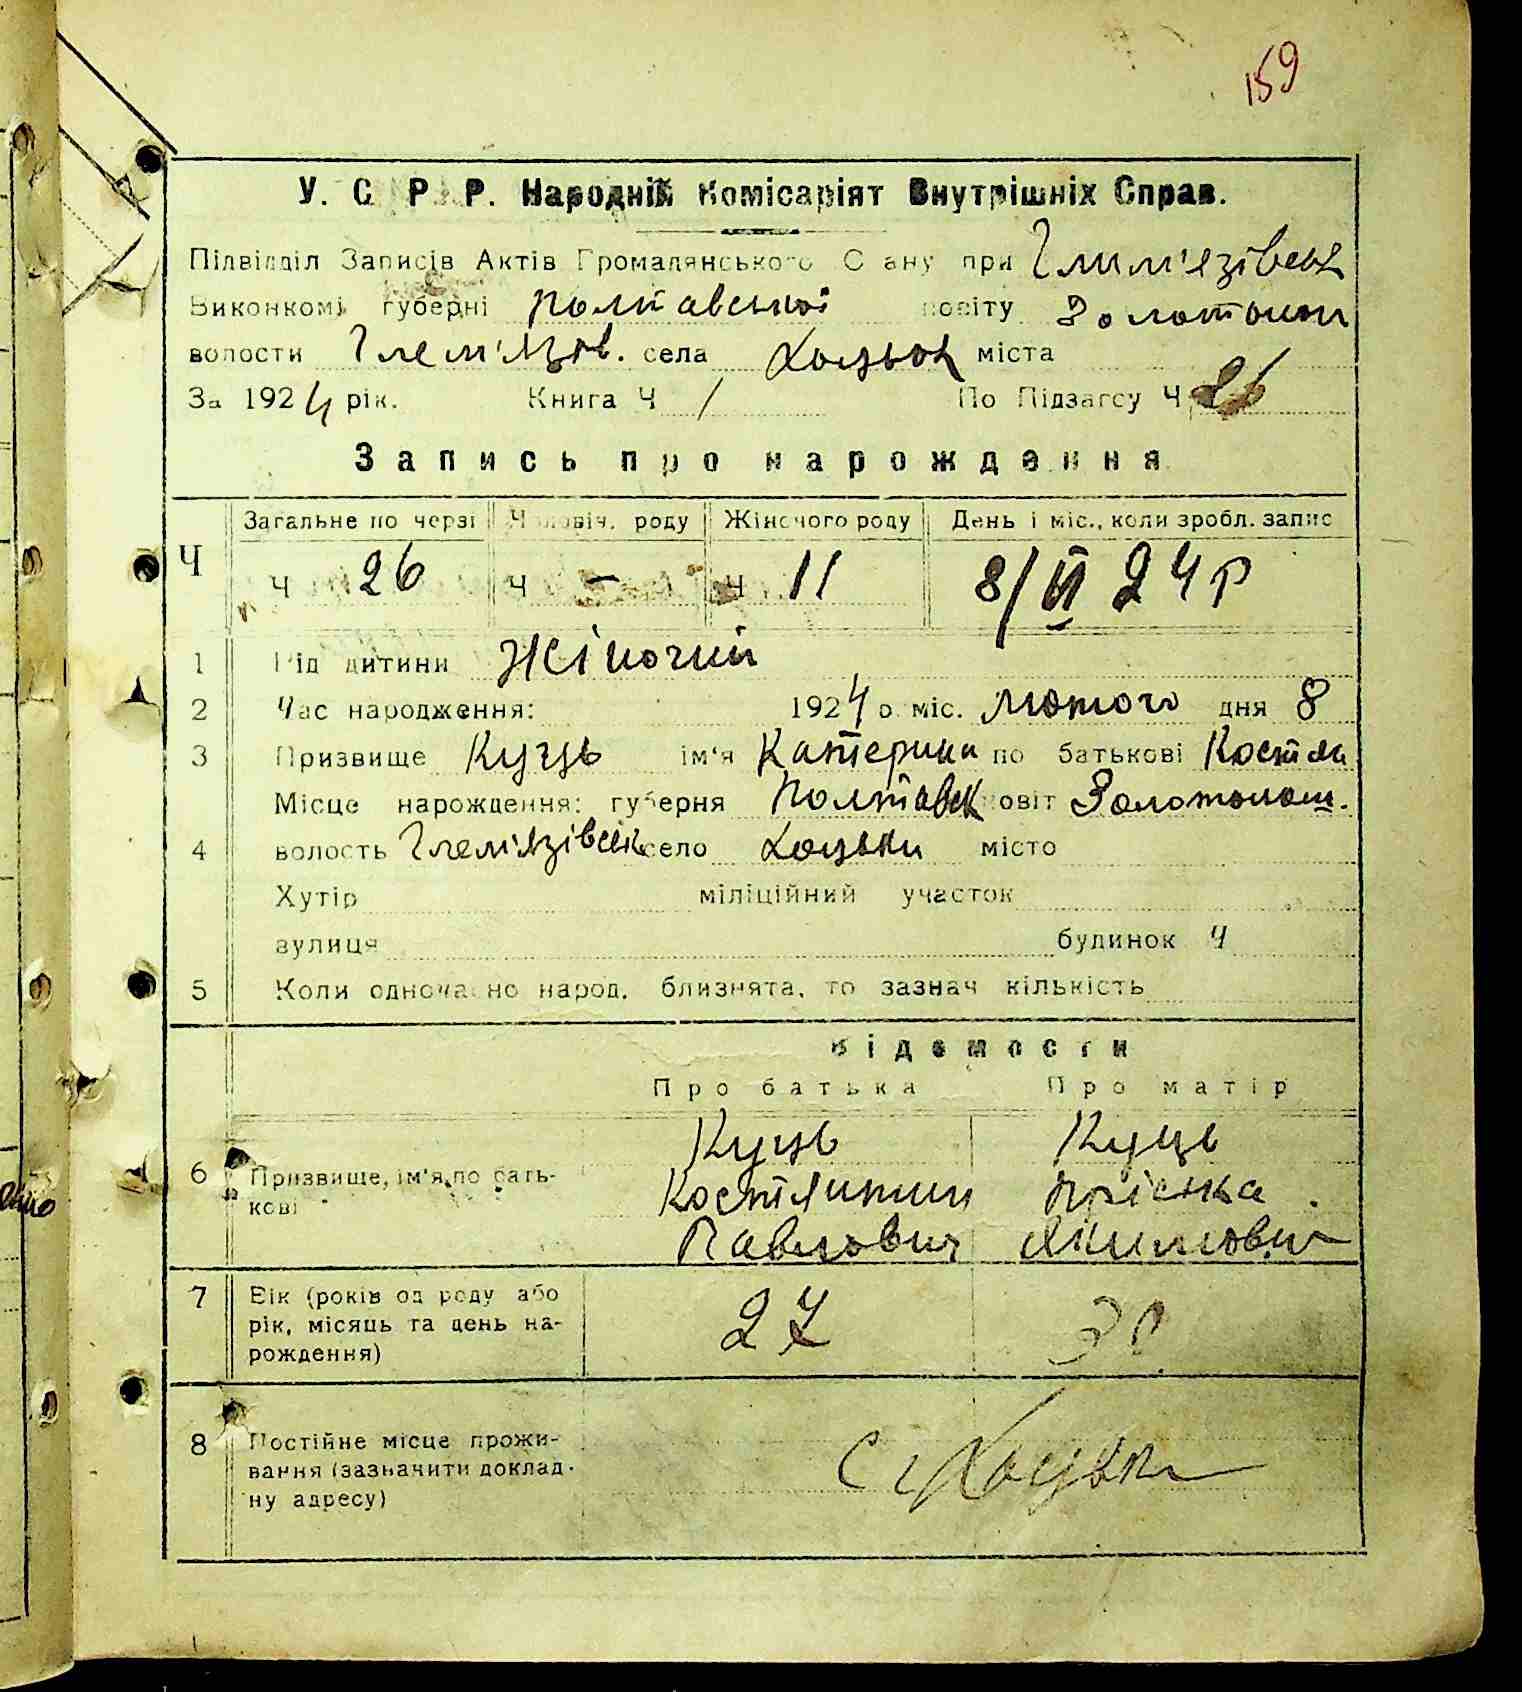 159
У. С. Р. Р. Народній Комісаріят Внутрішніх Справ.
Підвідділ Записів Актів Громадянського Стану при Глем'язівськ
Виконкомі губерні Полтавської повіту Золотонош
волости Глем'язів. села Хоцьок міста
За 1924 рік. Книга Ч 1 По Підзагсу Ч 26
Запись про нарождення
Ч Загальне по черзі Чоловіч. роду Жіночого роду День і міс., коли зробл. запис
Ч 26 Ч — Ч 11 8/II 24 р
1 Рід дитини Жіночий
2 Час народження: 1924 р. міс. Лютого дня 8
3 Призвище Куць ім'я Катерина по батькові Костян
Місце нарождення: губерня Полтавськ повіт Золотонош.
4 волость Глем'язівськ село Хоцьки місто
Хутір міліційний участок
вулиця будинок Ч
5 Коли одночасно народ. близнята, то зазнач кількість
Відомости
Про батька Про матір
Куць Куць
6 Призвище, ім'я, по бать- Костянтин Пріська
кові Павлович Якимовн
7 Вік (років од роду або 27
рік, місяць та день на-
рождення)
8 Постійне місце прожи-
вання (зазначити доклад- с Хоцьки
ну адресу)